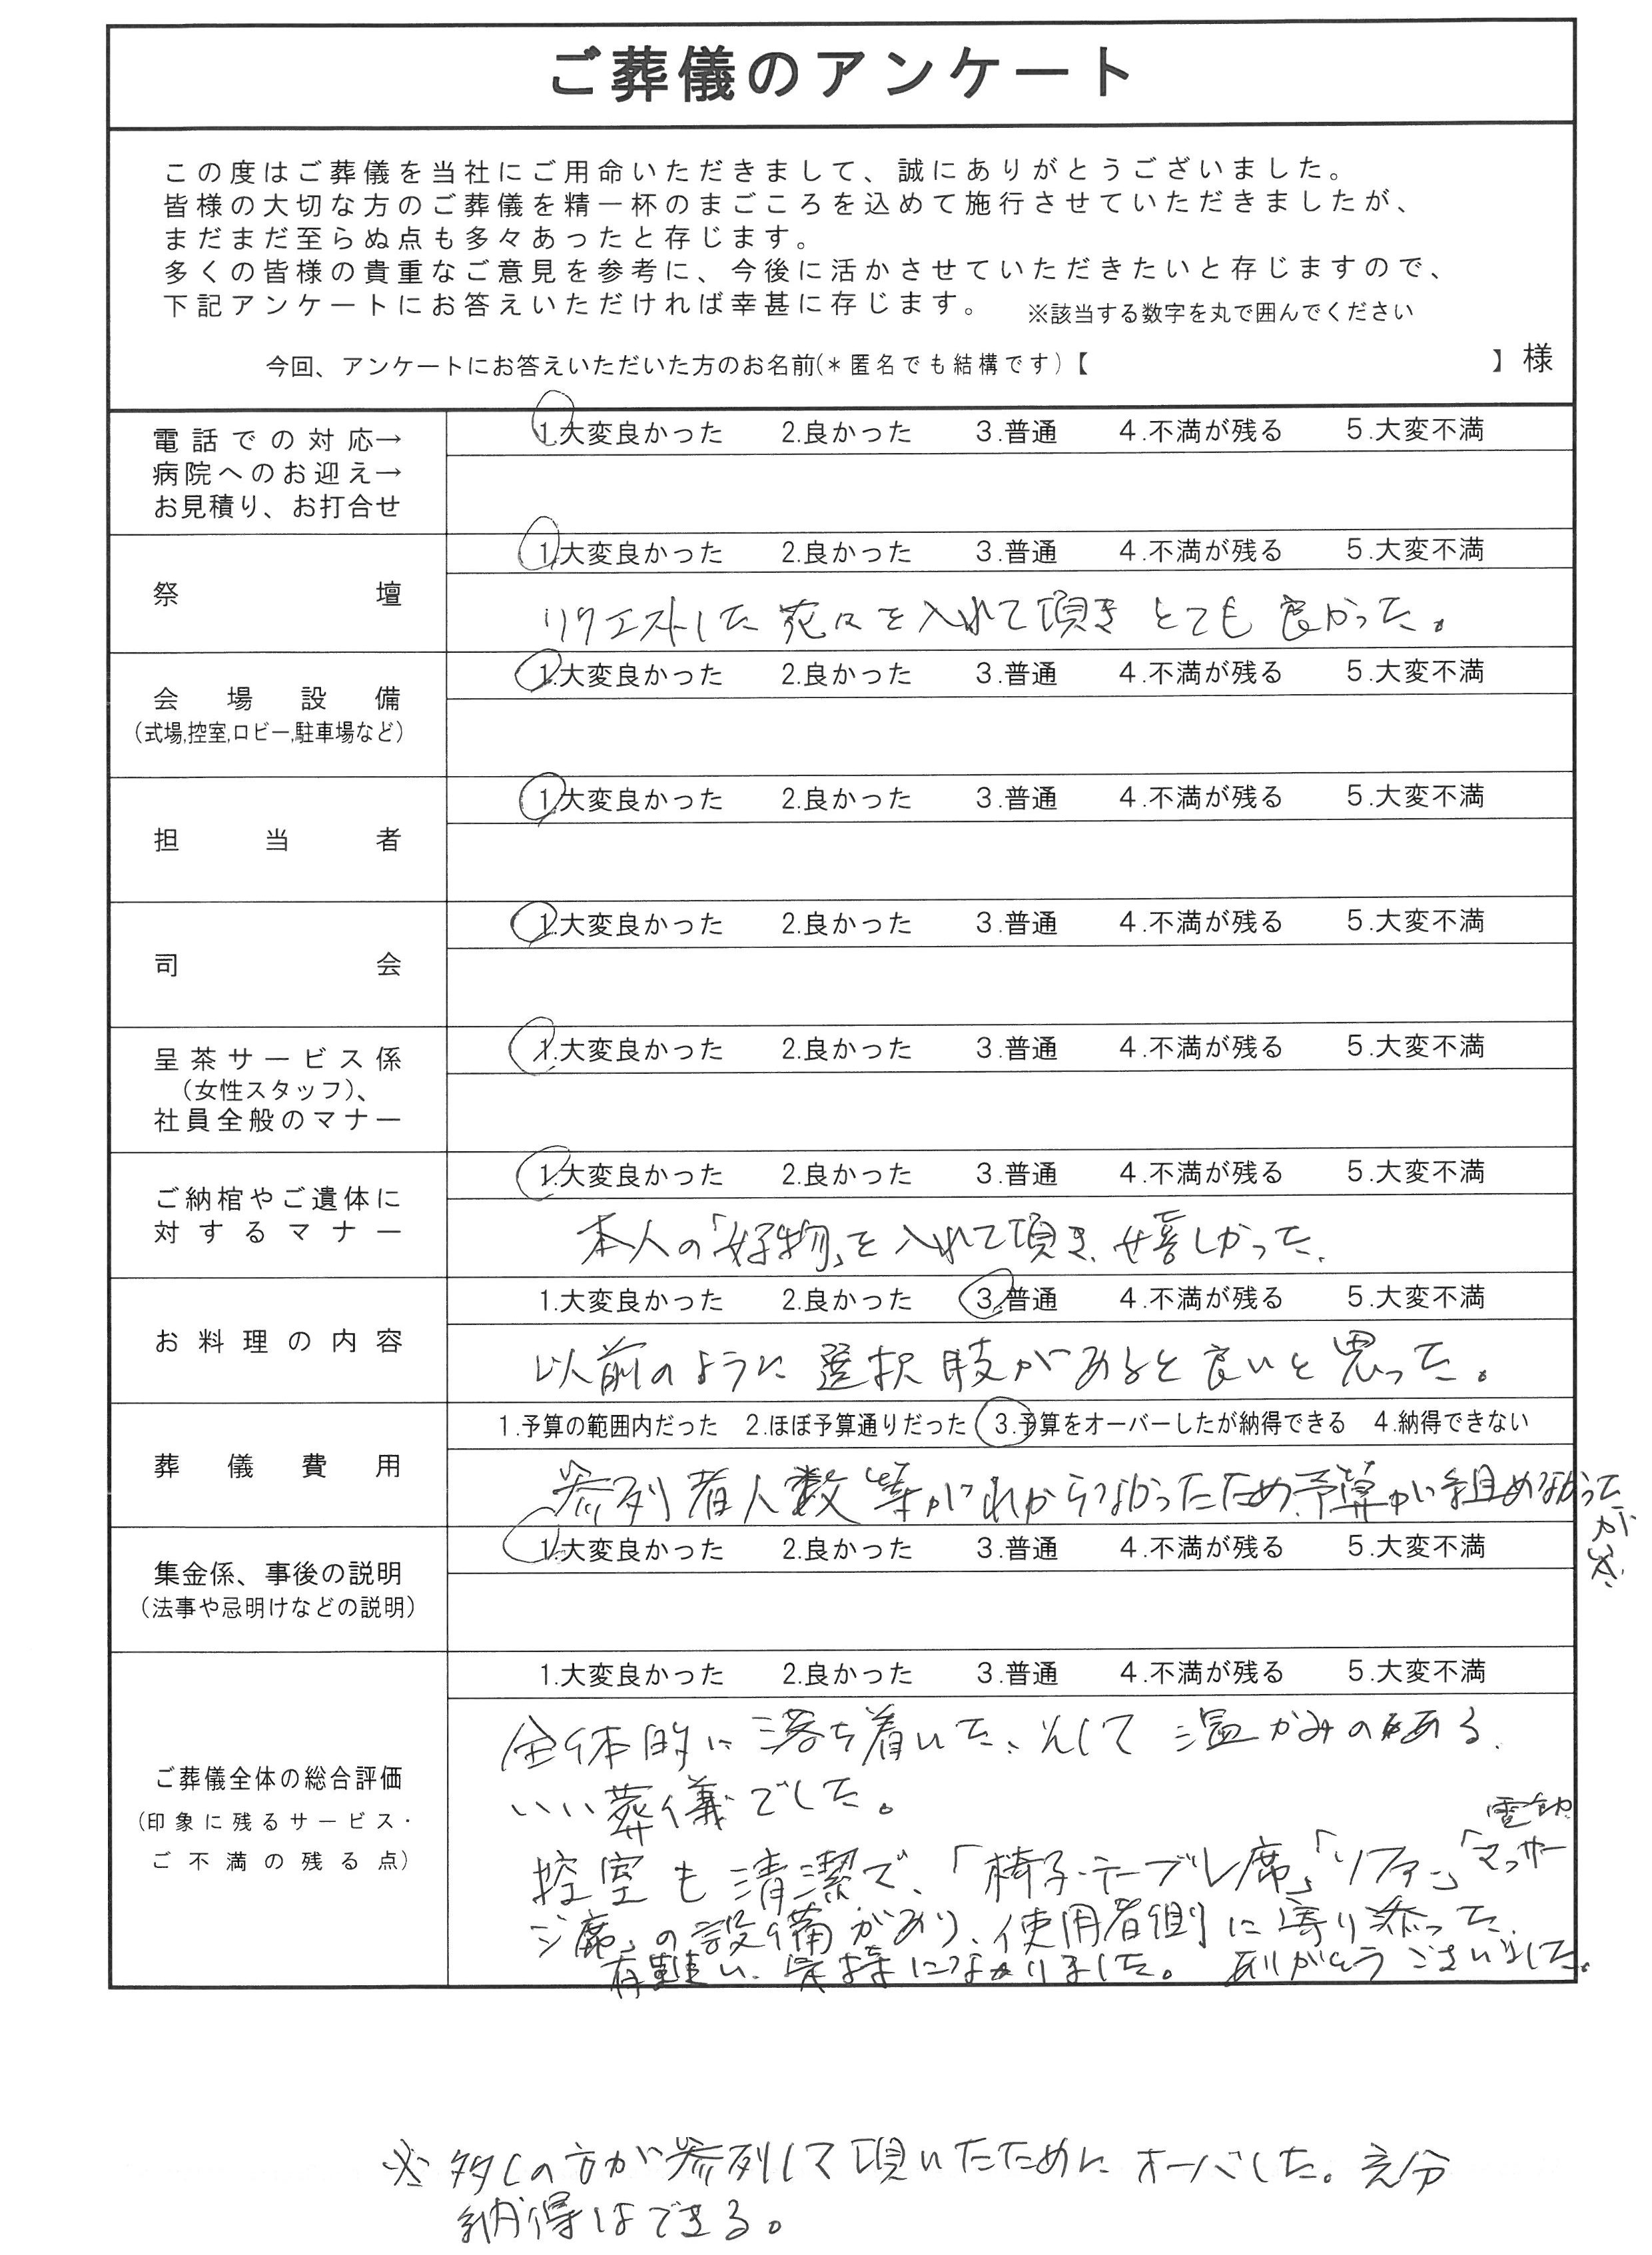 ご葬儀のアンケート
この度はご葬儀を当社にご用命いただきまして、誠にありがとうございました。
皆様の大切な方のご葬儀を精一杯のまごころを込めて施行させていただきましたが、
まだまだ至らぬ点も多々あったと存じます。
多くの皆様の貴重なご意見を参考に、今後に活かさせていただきたいと存じますので、
下記アンケートにお答えいただければ幸甚に存じます。 ※該当する数字を丸で囲んでください
今回、アンケートにお答えいただいた方のお名前(*匿名でも結構です)【 】様
電話での対応→
病院へのお迎え→
お見積り、お打合せ
1.大変良かった 2.良かった 3.普通 4.不満が残る 5.大変不満
祭壇
1.大変良かった 2.良かった 3.普通 4.不満が残る 5.大変不満
リクエストした花々を入れて頂きとても良かった。
会場設備
(式場,控室,ロビー,駐車場など)
1.大変良かった 2.良かった 3.普通 4.不満が残る 5.大変不満
担当者
1.大変良かった 2.良かった 3.普通 4.不満が残る 5.大変不満
司会
1.大変良かった 2.良かった 3.普通 4.不満が残る 5.大変不満
呈茶サービス係
(女性スタッフ)、
社員全般のマナー
1.大変良かった 2.良かった 3.普通 4.不満が残る 5.大変不満
ご納棺やご遺体に
対するマナー
1.大変良かった 2.良かった 3.普通 4.不満が残る 5.大変不満
本人の「好物」を入れて頂き、嬉しかった。
お料理の内容
1.大変良かった 2.良かった 3.普通 4.不満が残る 5.大変不満
以前のように選択肢があると良いと思った。
葬儀費用
1.予算の範囲内だった 2.ほぼ予算通りだった 3.予算をオーバーしたが納得できる 4.納得できない
参列者人数等がわからなかったため、予算が組めなかった
が
※
集金係、事後の説明
(法事や忌明けなどの説明)
1.大変良かった 2.良かった 3.普通 4.不満が残る 5.大変不満
ご葬儀全体の総合評価
(印象に残るサービス・
ご不満の残る点)
1.大変良かった 2.良かった 3.普通 4.不満が残る 5.大変不満
全体的に落ち着いた、そして温かみのある、
いい葬儀でした。
控室も清潔で、「椅子・テーブル席」「ソファー」「電動マッサー
ジ席」の設備があり、使用者側に寄り添った、
有難い、気持になりました。ありがとうございました。
※多くの方が参列して頂いたためにオーバーした。充分
納得はできる。